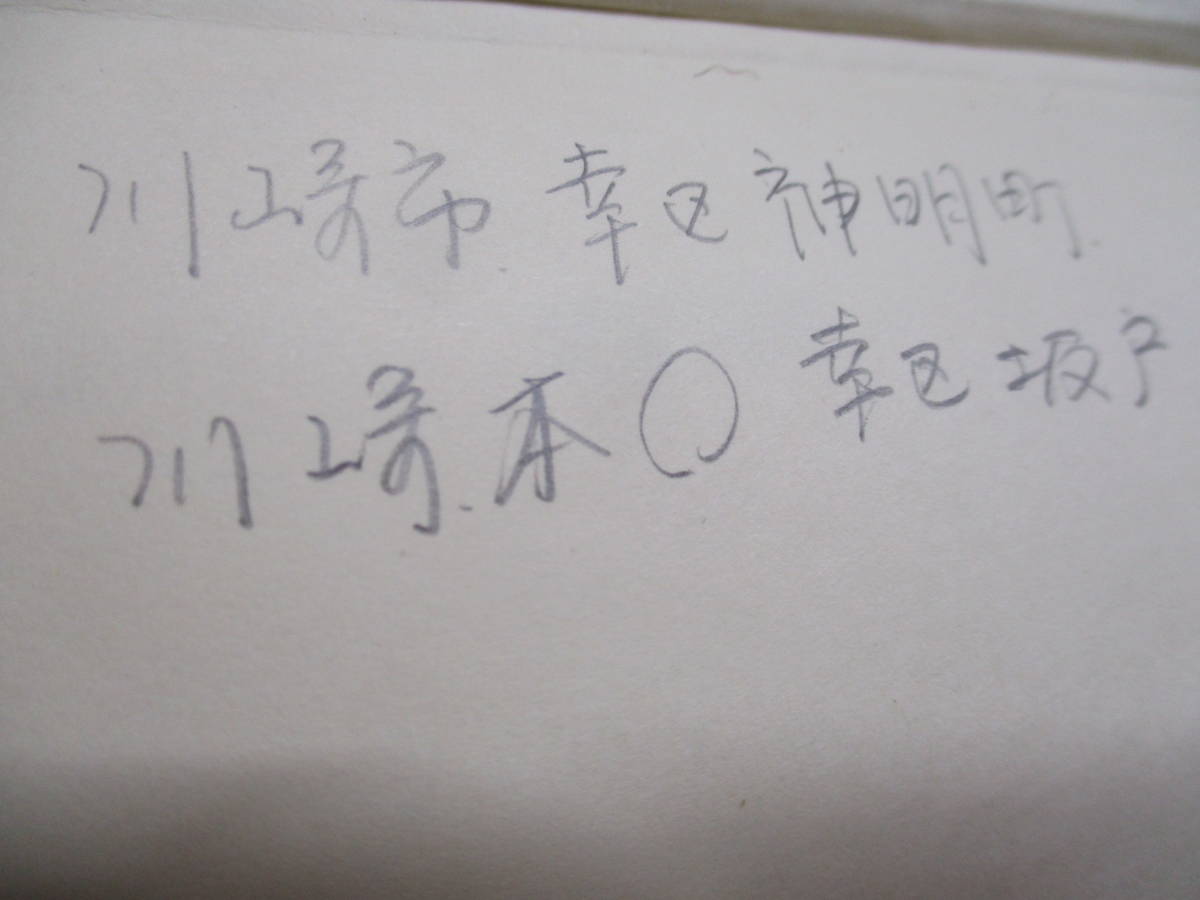 川崎市 幸区神明町
川崎 〇 幸区坂戸